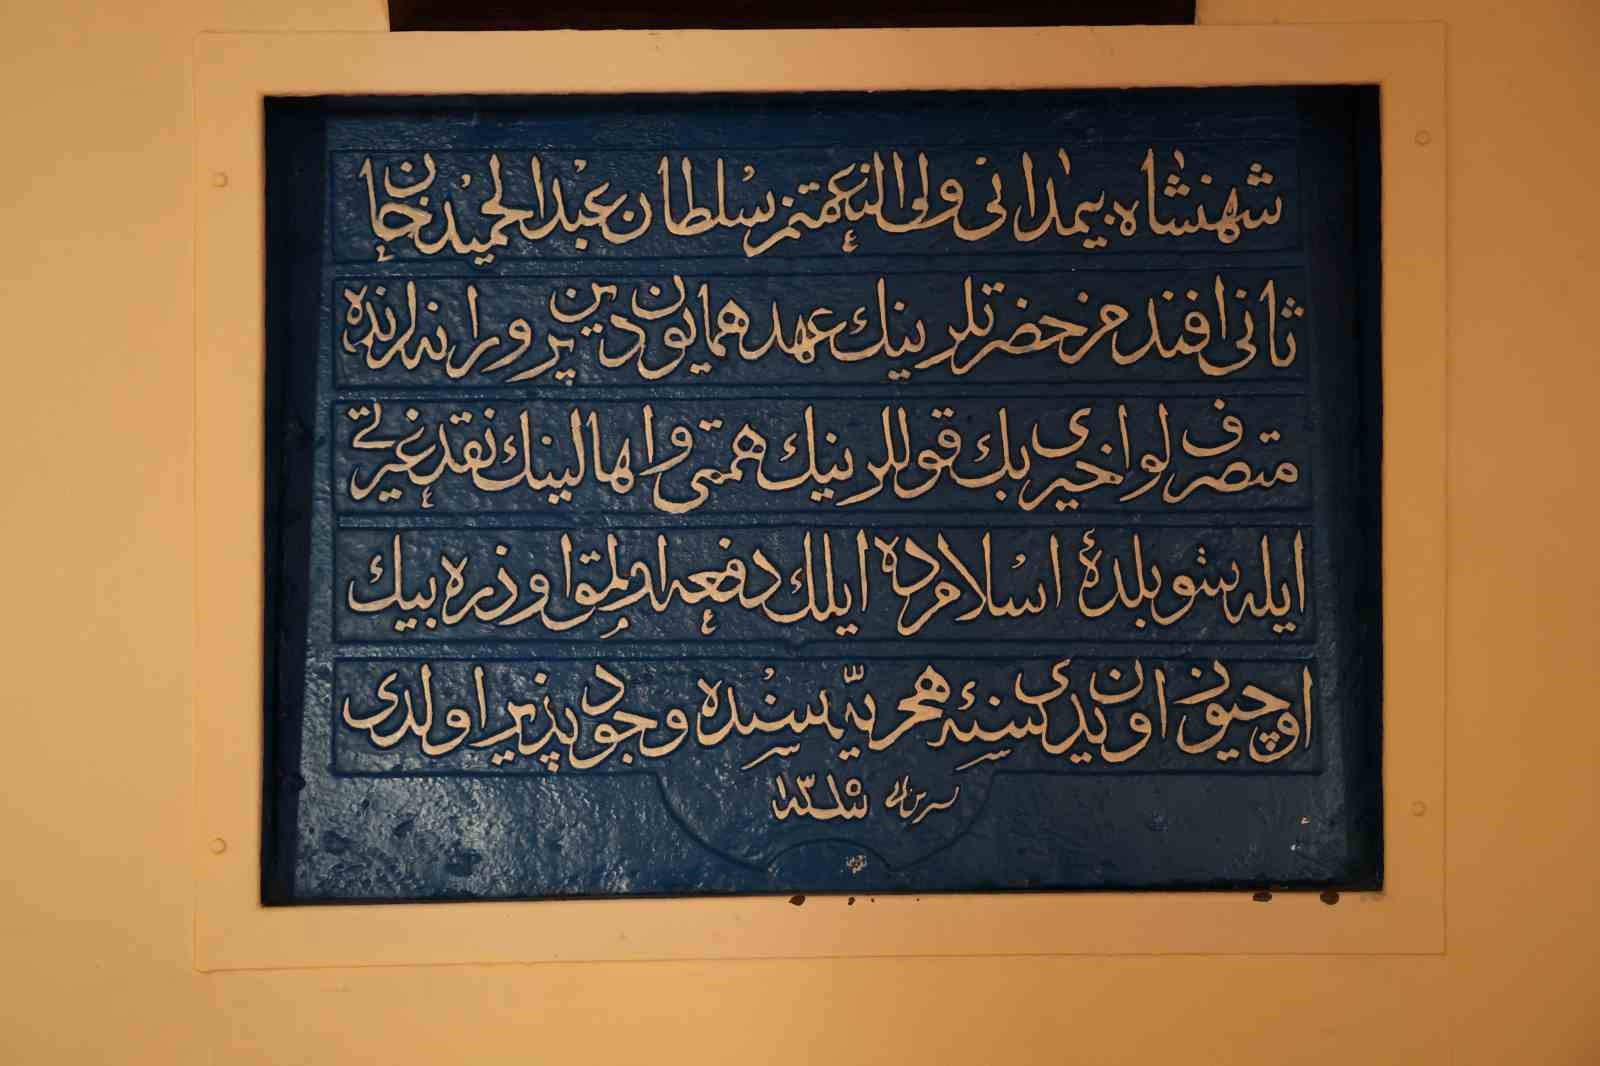 شهنشاه بيمدانى ولى النعمتمز سلطان عبد الحميد خان
ثانى افندمز حضرتلرينك عهد همايون دين پرورانه لرنده
متصرف لوا خيرى بك قوللرينك همتى و اهالينك نقد غيرتى
ايله شو بلدهٔ اسلامده ايلك دفعه اولمق اوزره بيك
اوچيوز اون يدى سنهٔ هجريه سنده وجود پذير اولدى
سنه ١٣١٥